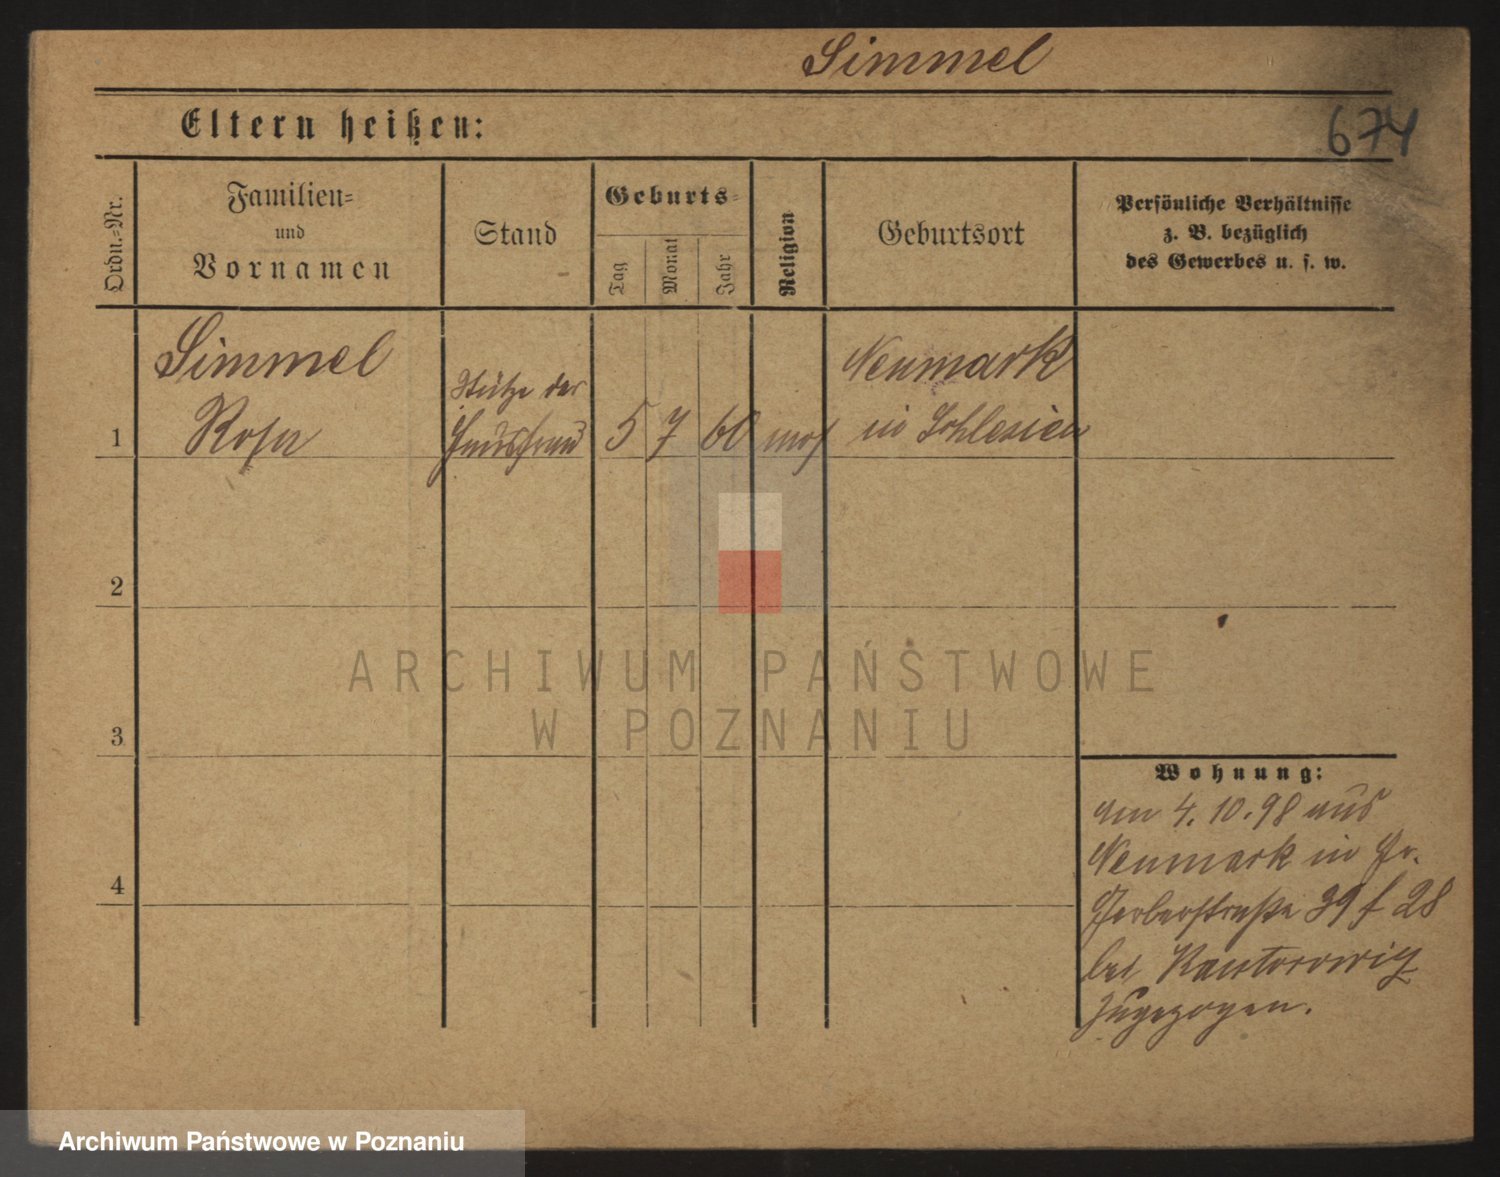 Simmel
Eltern heißen:
674
Ordn.=Nr.
Familien=
und
Vornamen
Stand
Geburts=
Tag
Monat
Jahr
Religion
Geburtsort
Persönliche Verhältnisse
z. B. bezüglich
des Gewerbes u. s. w.
Simmel
Rosa
Stütze der
Hausfrau
1
5 7 60 mos
Neumark
in Schlesien
2
3
4
ARCHIWUM PAŃSTWOWE
W POZNANIU
Wohnung:
am 4. 10. 98 aus
Neumark in Gr.
Gerberstraße 39 f 28
bei Kantorowicz
zugezogen.
Archiwum Państwowe w Poznaniu